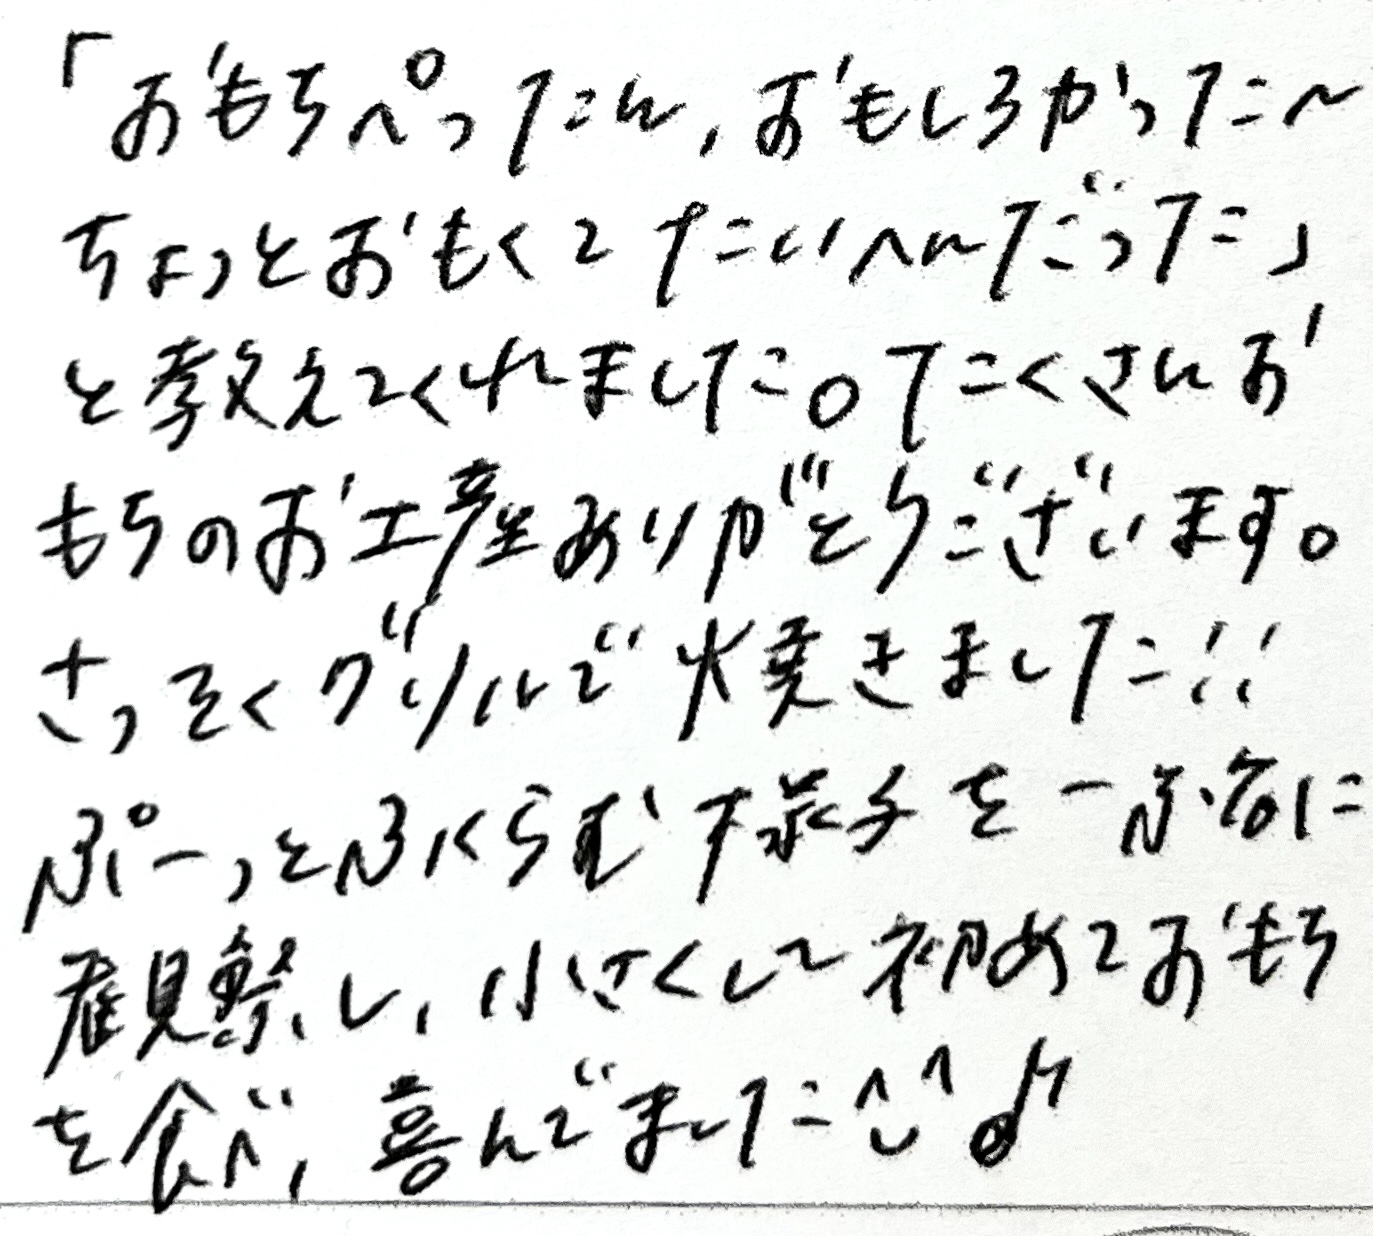 「おもちぺったん,おもしろかった〜
ちょっとおもくてたいへんだった」
と教えてくれました。たくさんお
もちのお土産ありがとうございます。
さっそくグリルで焼きました!!
ぷーっとふくらむ様子を一緒に
観察し,小さくして初めておもち
を食べ,喜んでました^^♪